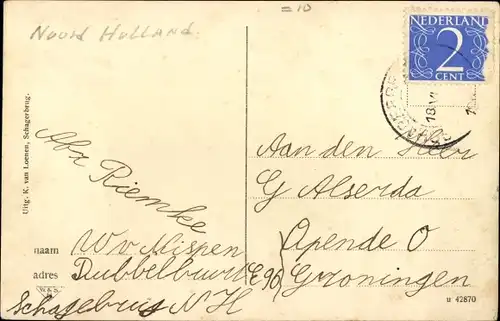 = 10
Noord Holland
NEDERLAND
2
CENT
18 VI
Uitg. K. van Loenen, Schagerbrug.
Abr Riemke
Aan den Heer
G Alserda
Opende O
Groningen
naam W v Mispen
adres Dubbelbuurt E 90
W&S
Schagebrug N H
u 42870